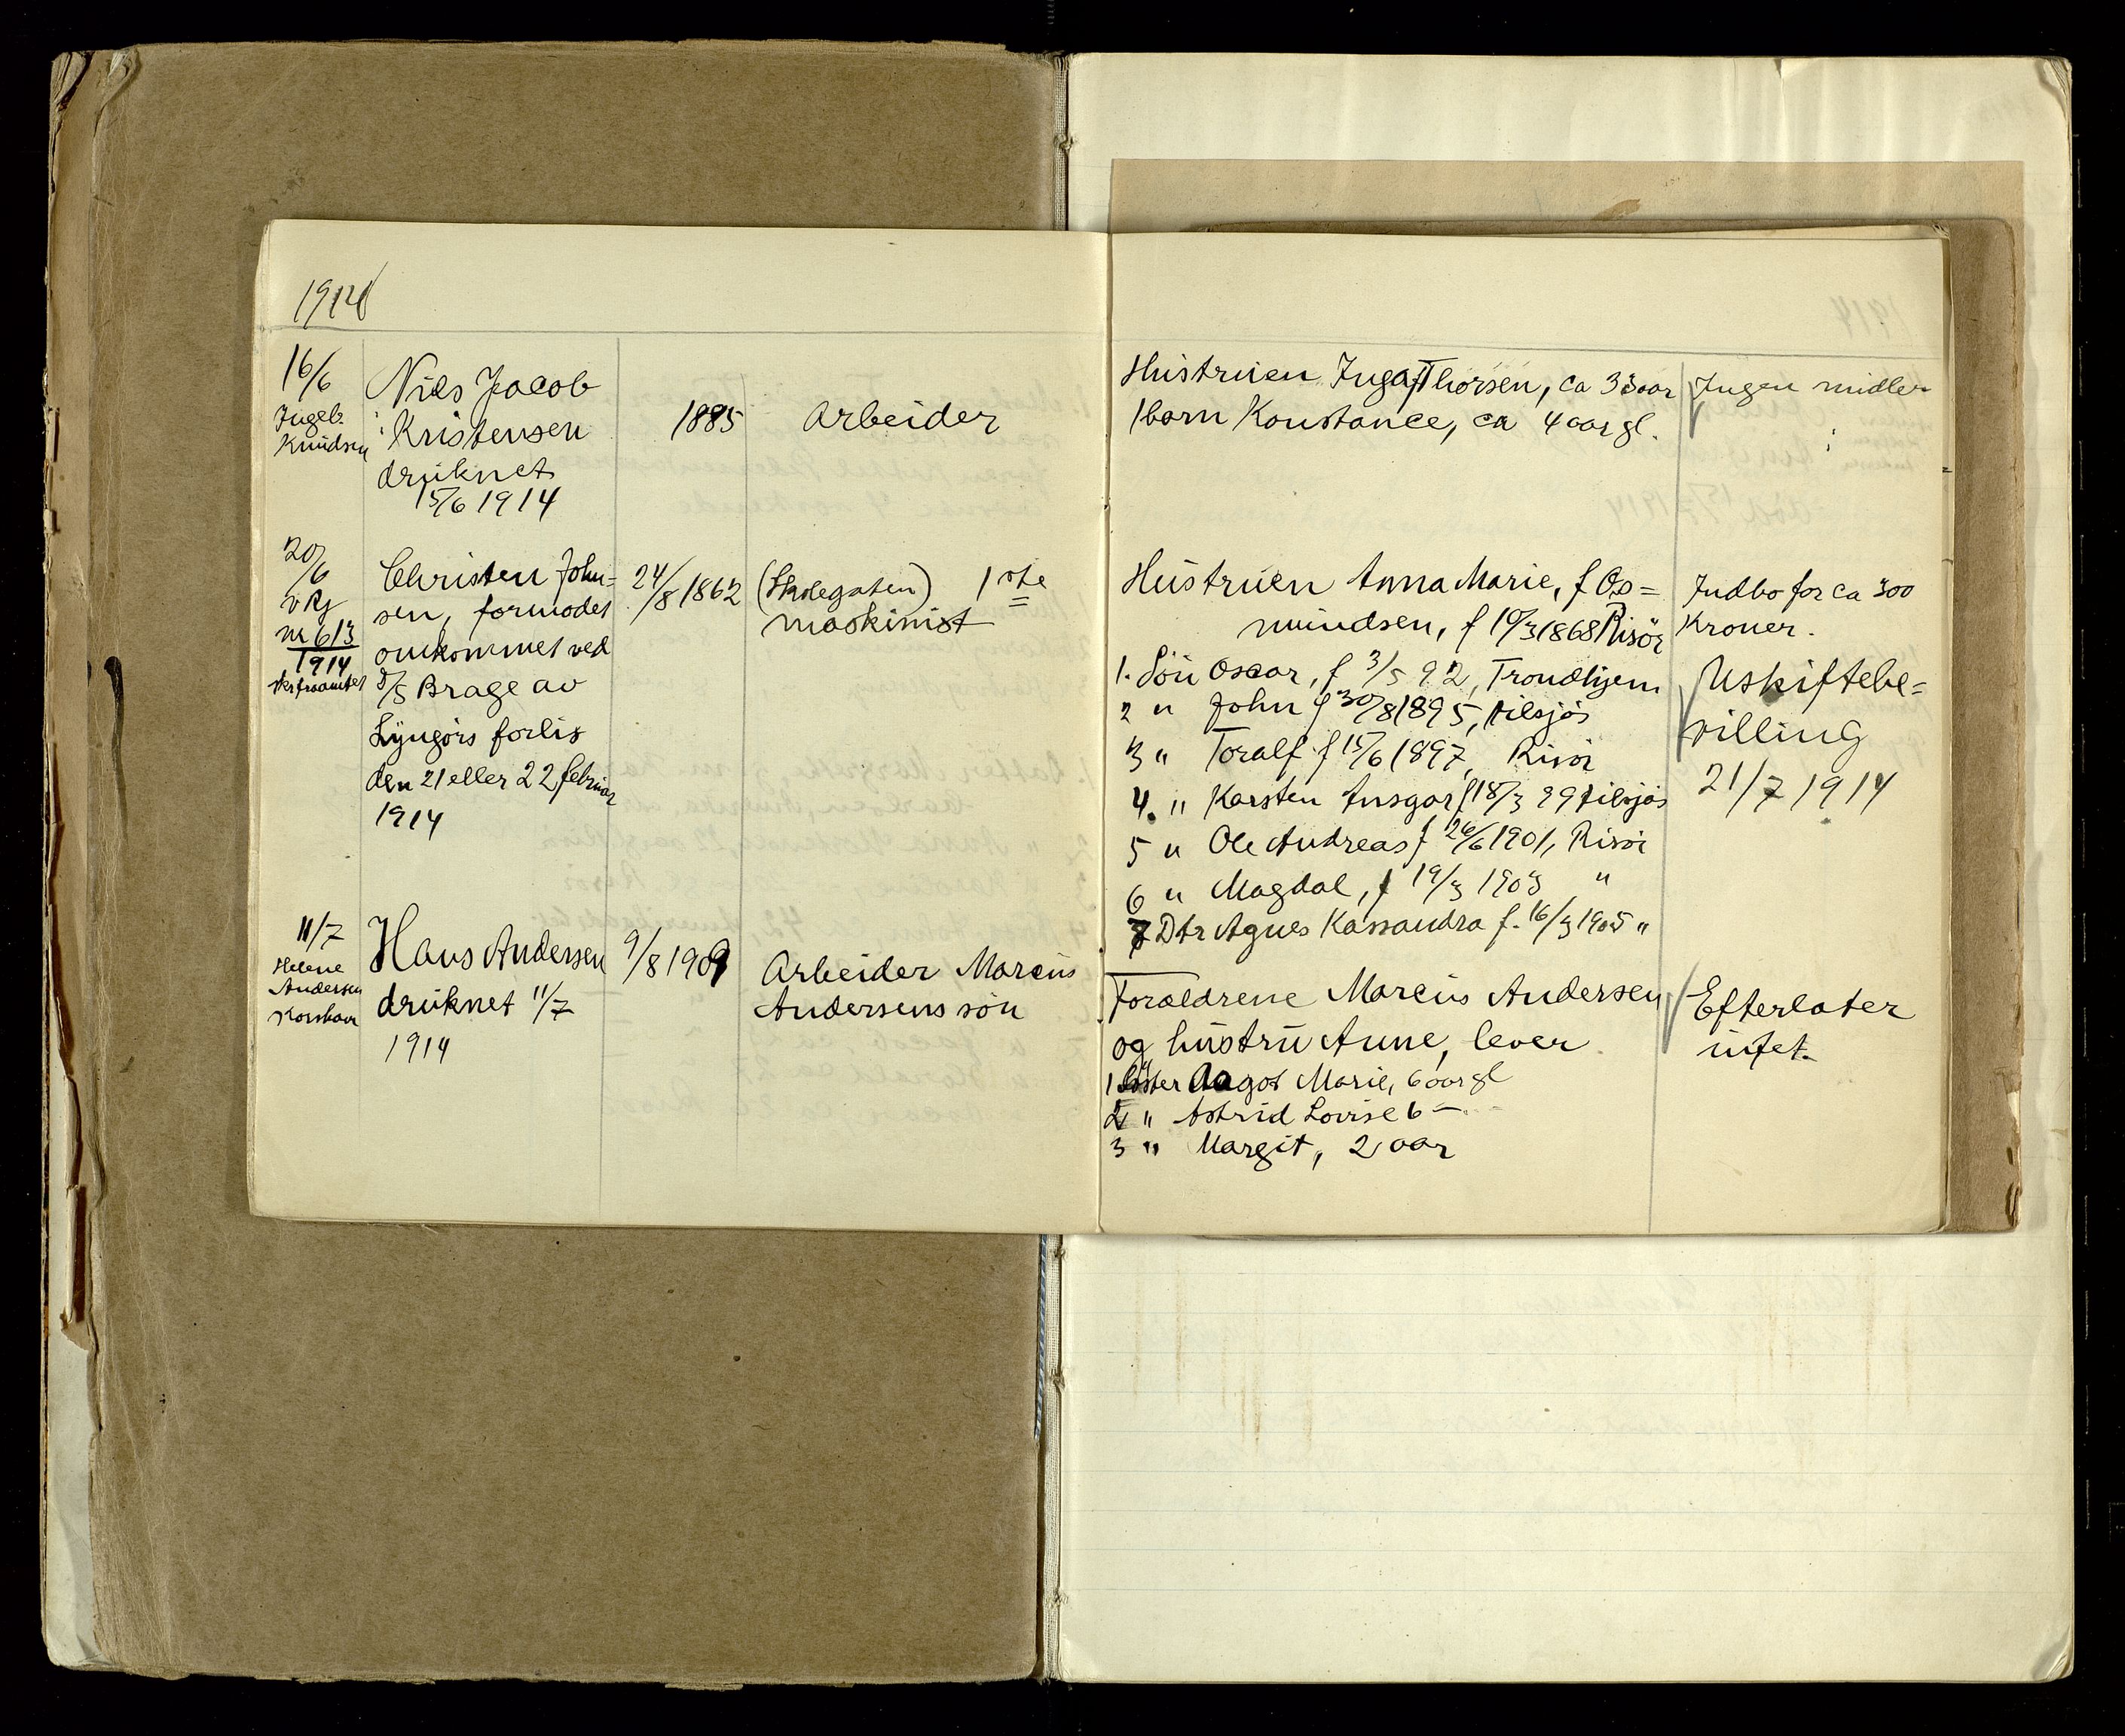 1914
16/6
Ingeb.
Knudsen
Niels Jacob
Kristensen
druknet
15/6 1914
1885
Arbeider
Hustruen Inga, f Thorsen, ca 33 aar
1 barn Konstance, ca 4 aar gl.
Ingen midler
20/6
v Rg
nr 613
1914
Christen John=
sen, formodet
omkommet ved
D/S Brage av
Lyngørs forlis
den 21 eller 22 februar
1914
24/8 1862
(Skolegaten) 1ste
maskinist
Hustruen Anna Marie, f Os=
mundsen, f 10/3 1868 Risör
1. Sön Oscar, f 3/5 92, Trondhjem
2 " John f 30/8 1895, tilsjös
3 " Toralf f 15/6 1897, Risör
4. " Karsten Ansgar f 18/3 99 tilsjös
5 " Ole Andreas f 26/6 1901, Risör
6 " Magdal, f 19/3 1903 "
7 Dtr Agnes Kassandra f. 16/3 1905 "
Indbo for ca 300
Kroner.
Uskiftebe=
villing
21/7 1914
11/7
Helene
Andersen
Hans Andersen
druknet 11/7
1914
9/8 1909
Arbeider Marcus
Andersens sön
Forældrene Marcus Andersen
og hustru Anne, lever
1 Söster Aagot Marie, 6 aar gl
2 " Astrid Lovise 6 —
3 " Margit, 2 aar
Efterlater
intet.